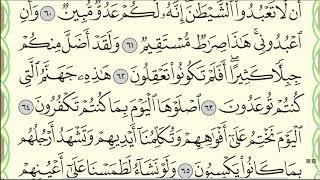 أَن لَّا تَعْبُدُوا۟ ٱلشَّيْطَٰنَ إِنَّهُۥ لَكُمْ عَدُوٌّ مُّبِينٌ ٦٠ وَأَنِ
ٱعْبُدُونِى هَٰذَا صِرَٰطٌ مُّسْتَقِيمٌ ٦١ وَلَقَدْ أَضَلَّ مِنكُمْ
جِبِلًّا كَثِيرًا أَفَلَمْ تَكُونُوا۟ تَعْقِلُونَ ٦٢ هَٰذِهِۦ جَهَنَّمُ ٱلَّتِى
كُنتُمْ تُوعَدُونَ ٦٣ ٱصْلَوْهَا ٱلْيَوْمَ بِمَا كُنتُمْ تَكْفُرُونَ ٦٤
ٱلْيَوْمَ نَخْتِمُ عَلَىٰٓ أَفْوَٰهِهِمْ وَتُكَلِّمُنَآ أَيْدِيهِمْ وَتَشْهَدُ أَرْجُلُهُم
بِمَا كَانُوا۟ يَكْسِبُونَ ٦٥ وَلَوْ نَشَآءُ لَطَمَسْنَا عَلَىٰٓ أَعْيُنِهِمْ